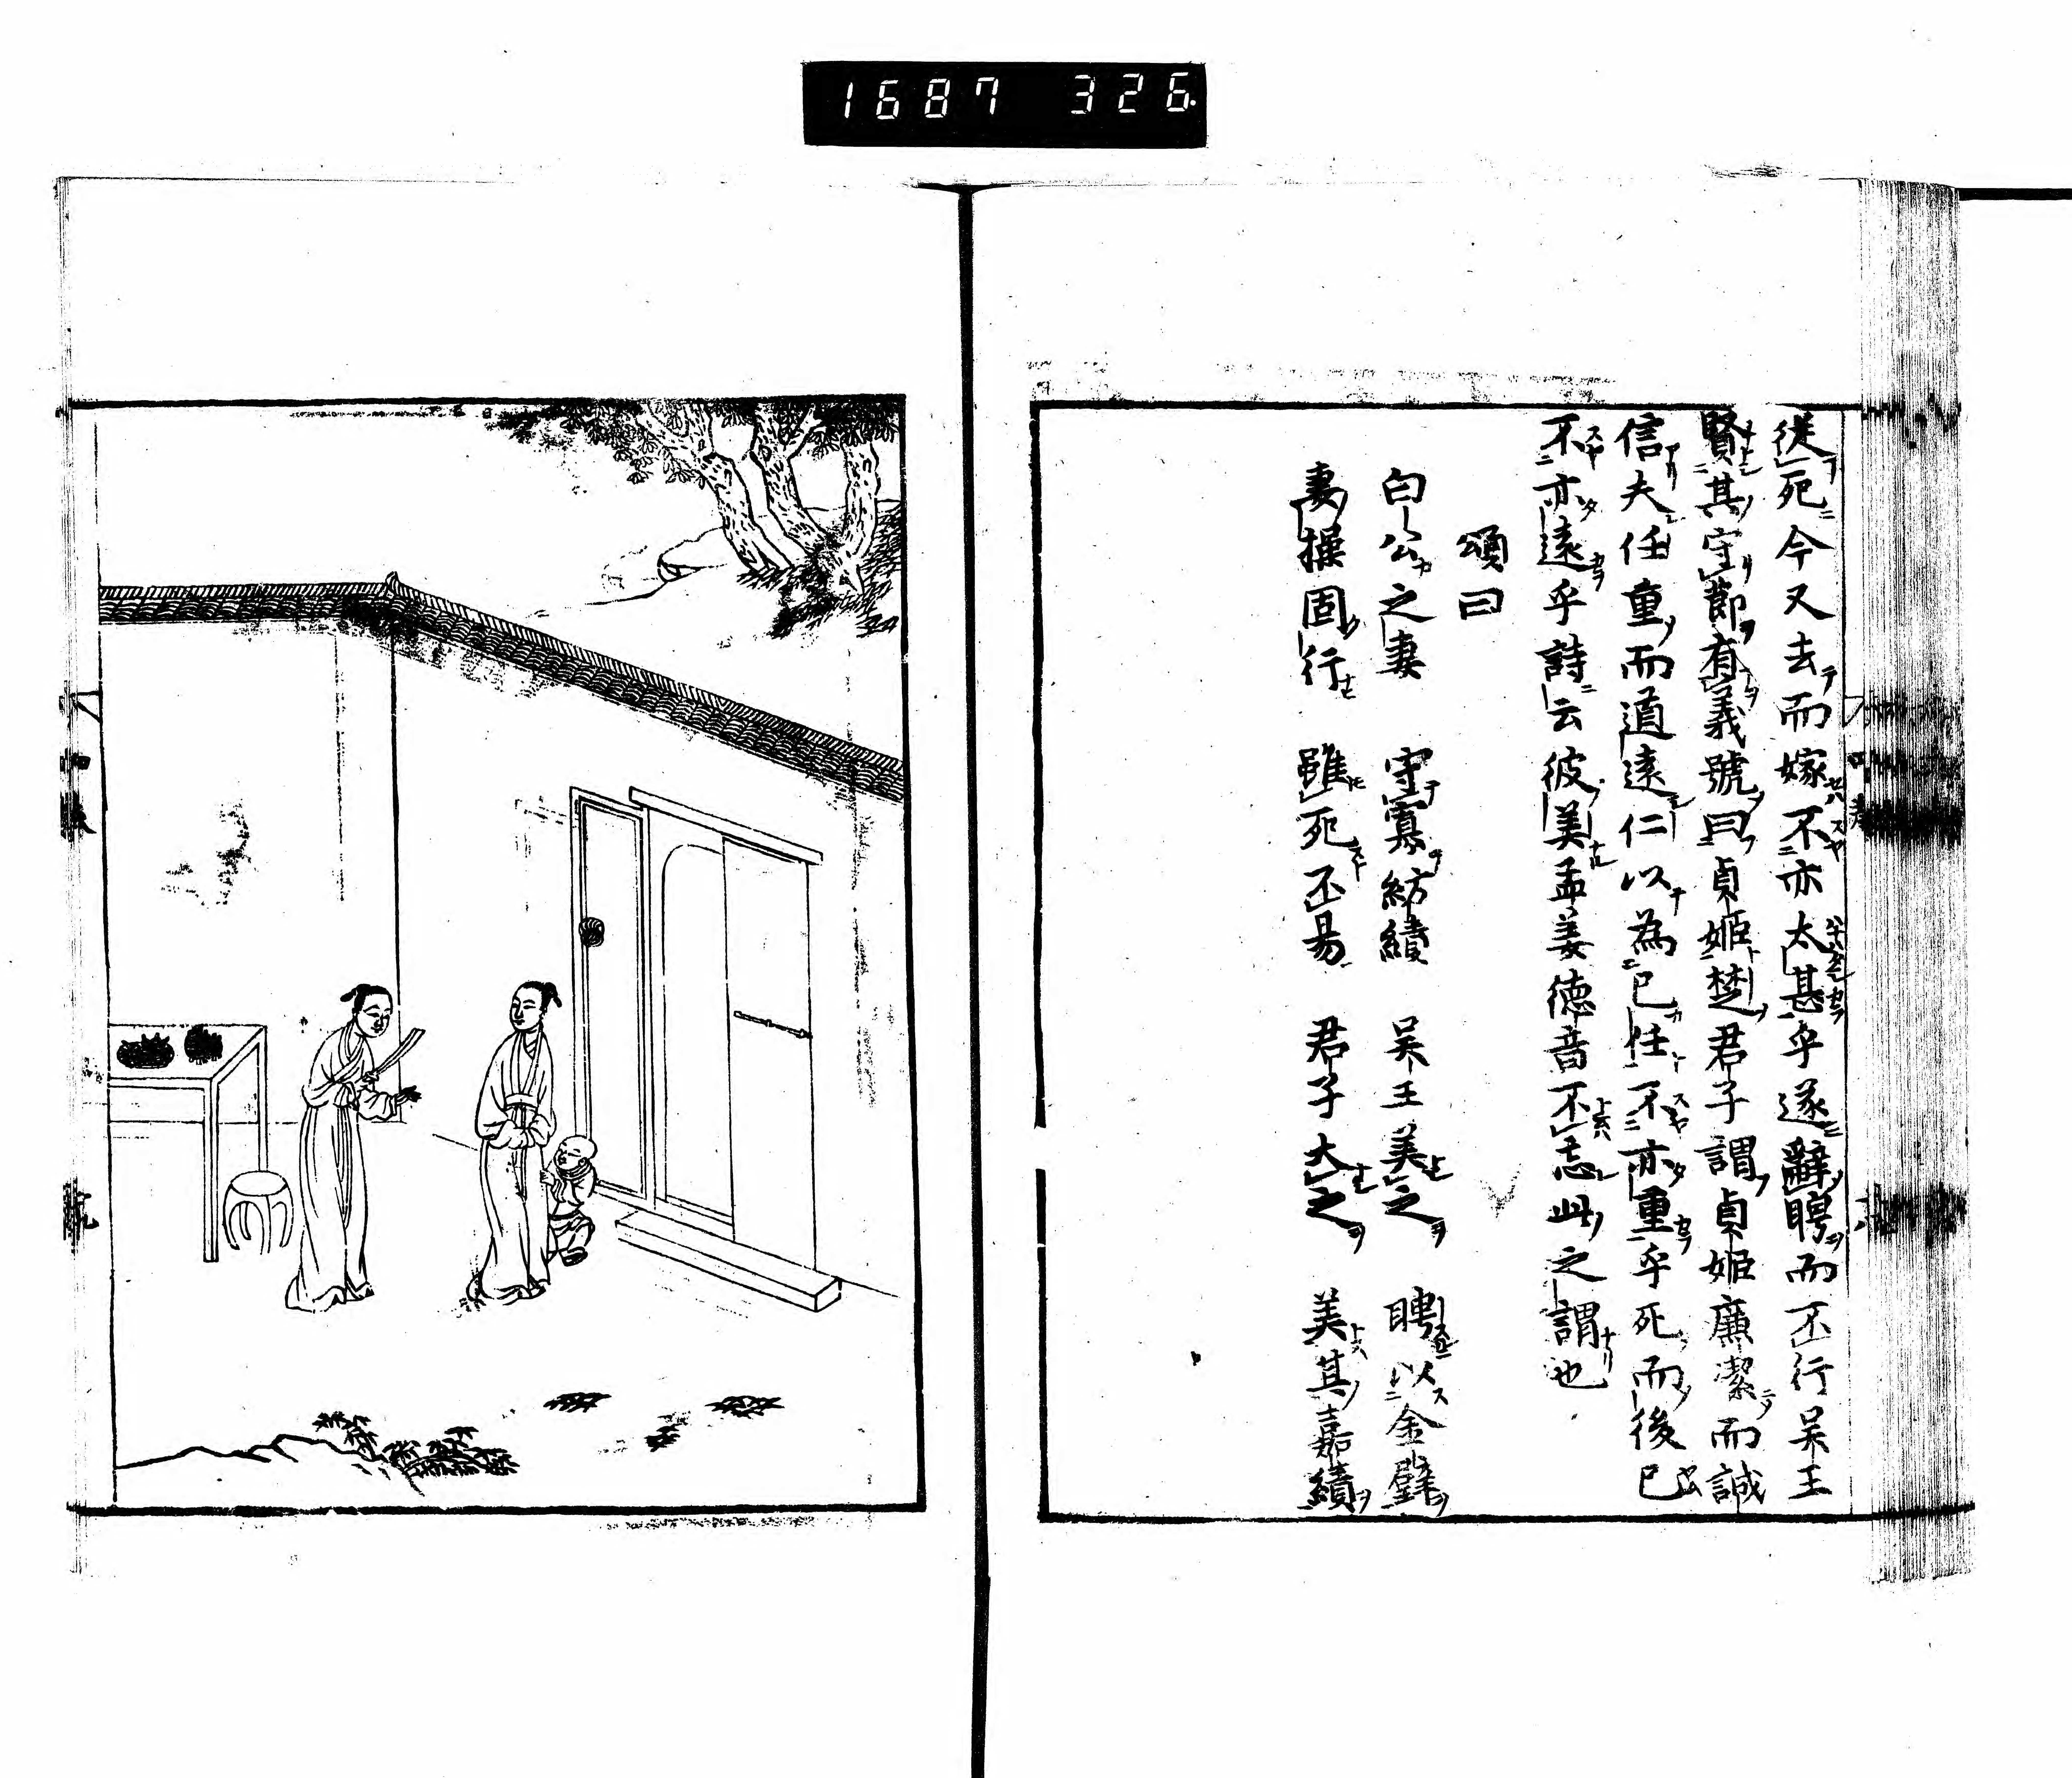 1687 326
從死今又去而嫁不亦太甚乎遂辭聘而不行吴王
賢其守節有義號曰貞姬楚君子謂貞姬廉潔而誠
信夫任重而道遠仁以為已任不亦重乎死而後已
不亦遠乎詩云彼美孟姜徳音不忘此之謂也
頌曰
白公之妻 守寡紡績 吴王美之 聘以金璧
妻操固行 雖死不易 君子大之 美其嘉績